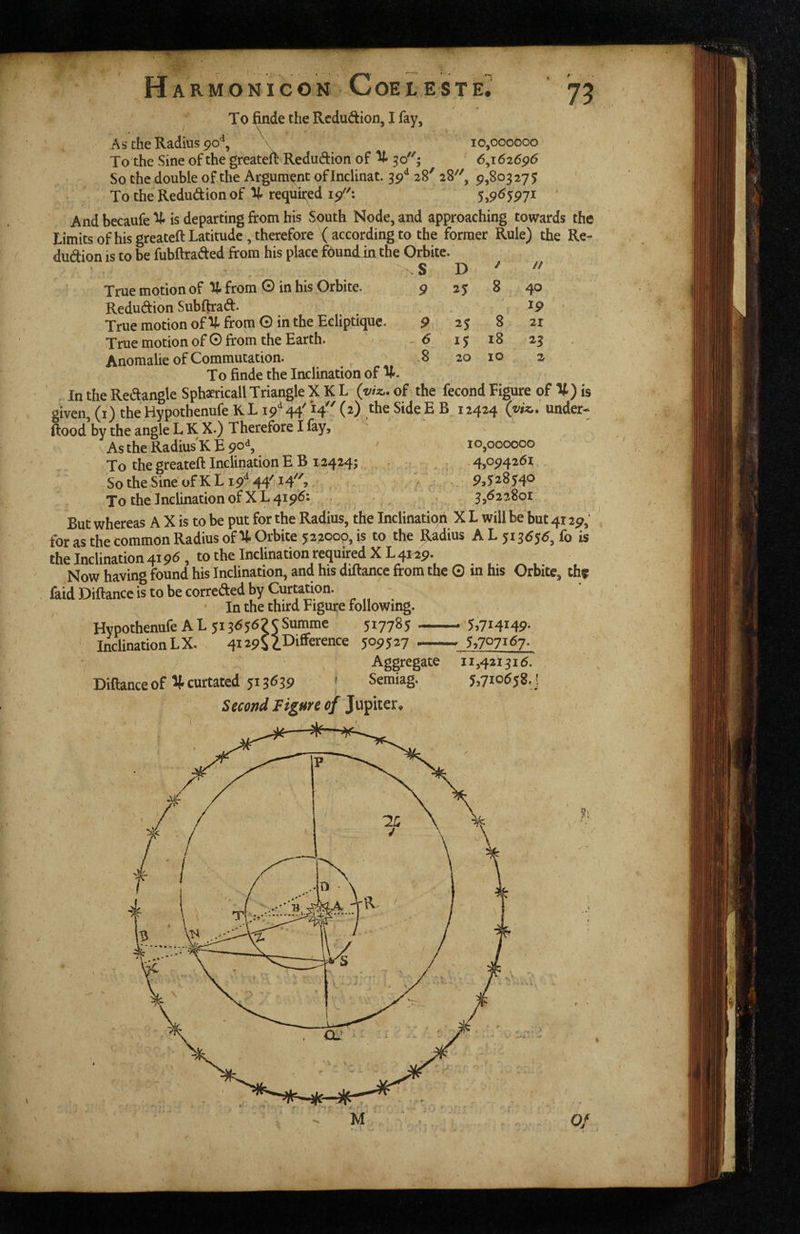 HARMONICON COELESTE. 73
To finde the Reduction, I ſay,
As the Radius 90d, 10,000000
To the Sine of the greateſt Reduction of ♃ 30″; 6,162696
So the double of the Argument of Inclinat. 39d 28′ 28″, 9,803275
To the Reduction of ♃ required 19″: 5,965971
And becauſe ♃ is departing from his South Node, and approaching towards the
Limits of his greateſt Latitude, therefore ( according to the former Rule) the Re-
duction is to be ſubſtracted from his place found in the Orbite.
S D ′ ″
True motion of ♃ from ☉ in his Orbite. 9 25 8 40
Reduction Subſtract. 19
True motion of ♃ from ☉ in the Ecliptique. 9 25 8 21
True motion of ☉ from the Earth. 6 15 18 23
Anomalie of Commutation. 8 20 10 2
To finde the Inclination of ♃.
In the Rectangle Sphæricall Triangle X K L (viz. of the ſecond Figure of ♃) is
given, (1) the Hypothenuſe K L 19d 44′ 14″ (2) the Side E B 12424 (viz. under-
ſtood by the angle L K X.) Therefore I ſay,
As the Radius K E 90d, 10,000000
To the greateſt Inclination E B 12424; 4,094261
So the Sine of K L 19d 44′ 14″, 9,528540
To the Inclination of X L 4196: 3,622801
But whereas A X is to be put for the Radius, the Inclination X L will be but 4129,
for as the common Radius of ♃ Orbite 522000, is to the Radius A L 513656, ſo is
the Inclination 4196, to the Inclination required X L 4129.
Now having found his Inclination, and his diſtance from the ☉ in his Orbite, the
ſaid Diſtance is to be corrected by Curtation.
In the third Figure following.
Hypothenuſe A L 513656 Summe 517785 —— 5,714149.
Inclination L X. 4129 Difference 509527 —— 5,707167.
Aggregate 11,421316.
Diſtance of ♃ curtated 513639 Semiag. 5,710658.
Second Figure of Jupiter.
P
♃
D
B A R
T
B N Z
X S
Q
M Of